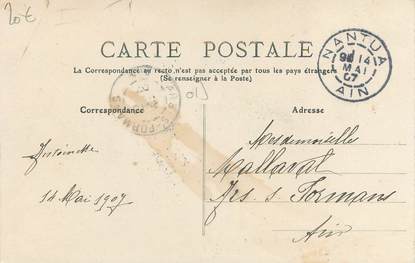 20€
CARTE POSTALE
La Correspondance au recto n'est pas acceptée par tous les pays étrangers
(Se renseigner à la Poste)
NANTUA
14
MAI
07
AIN
Correspondance
Adresse
Antoinette
14 Mai 1907
Mesdemoiselles
Mallaval
Ars s. Formans
Ain